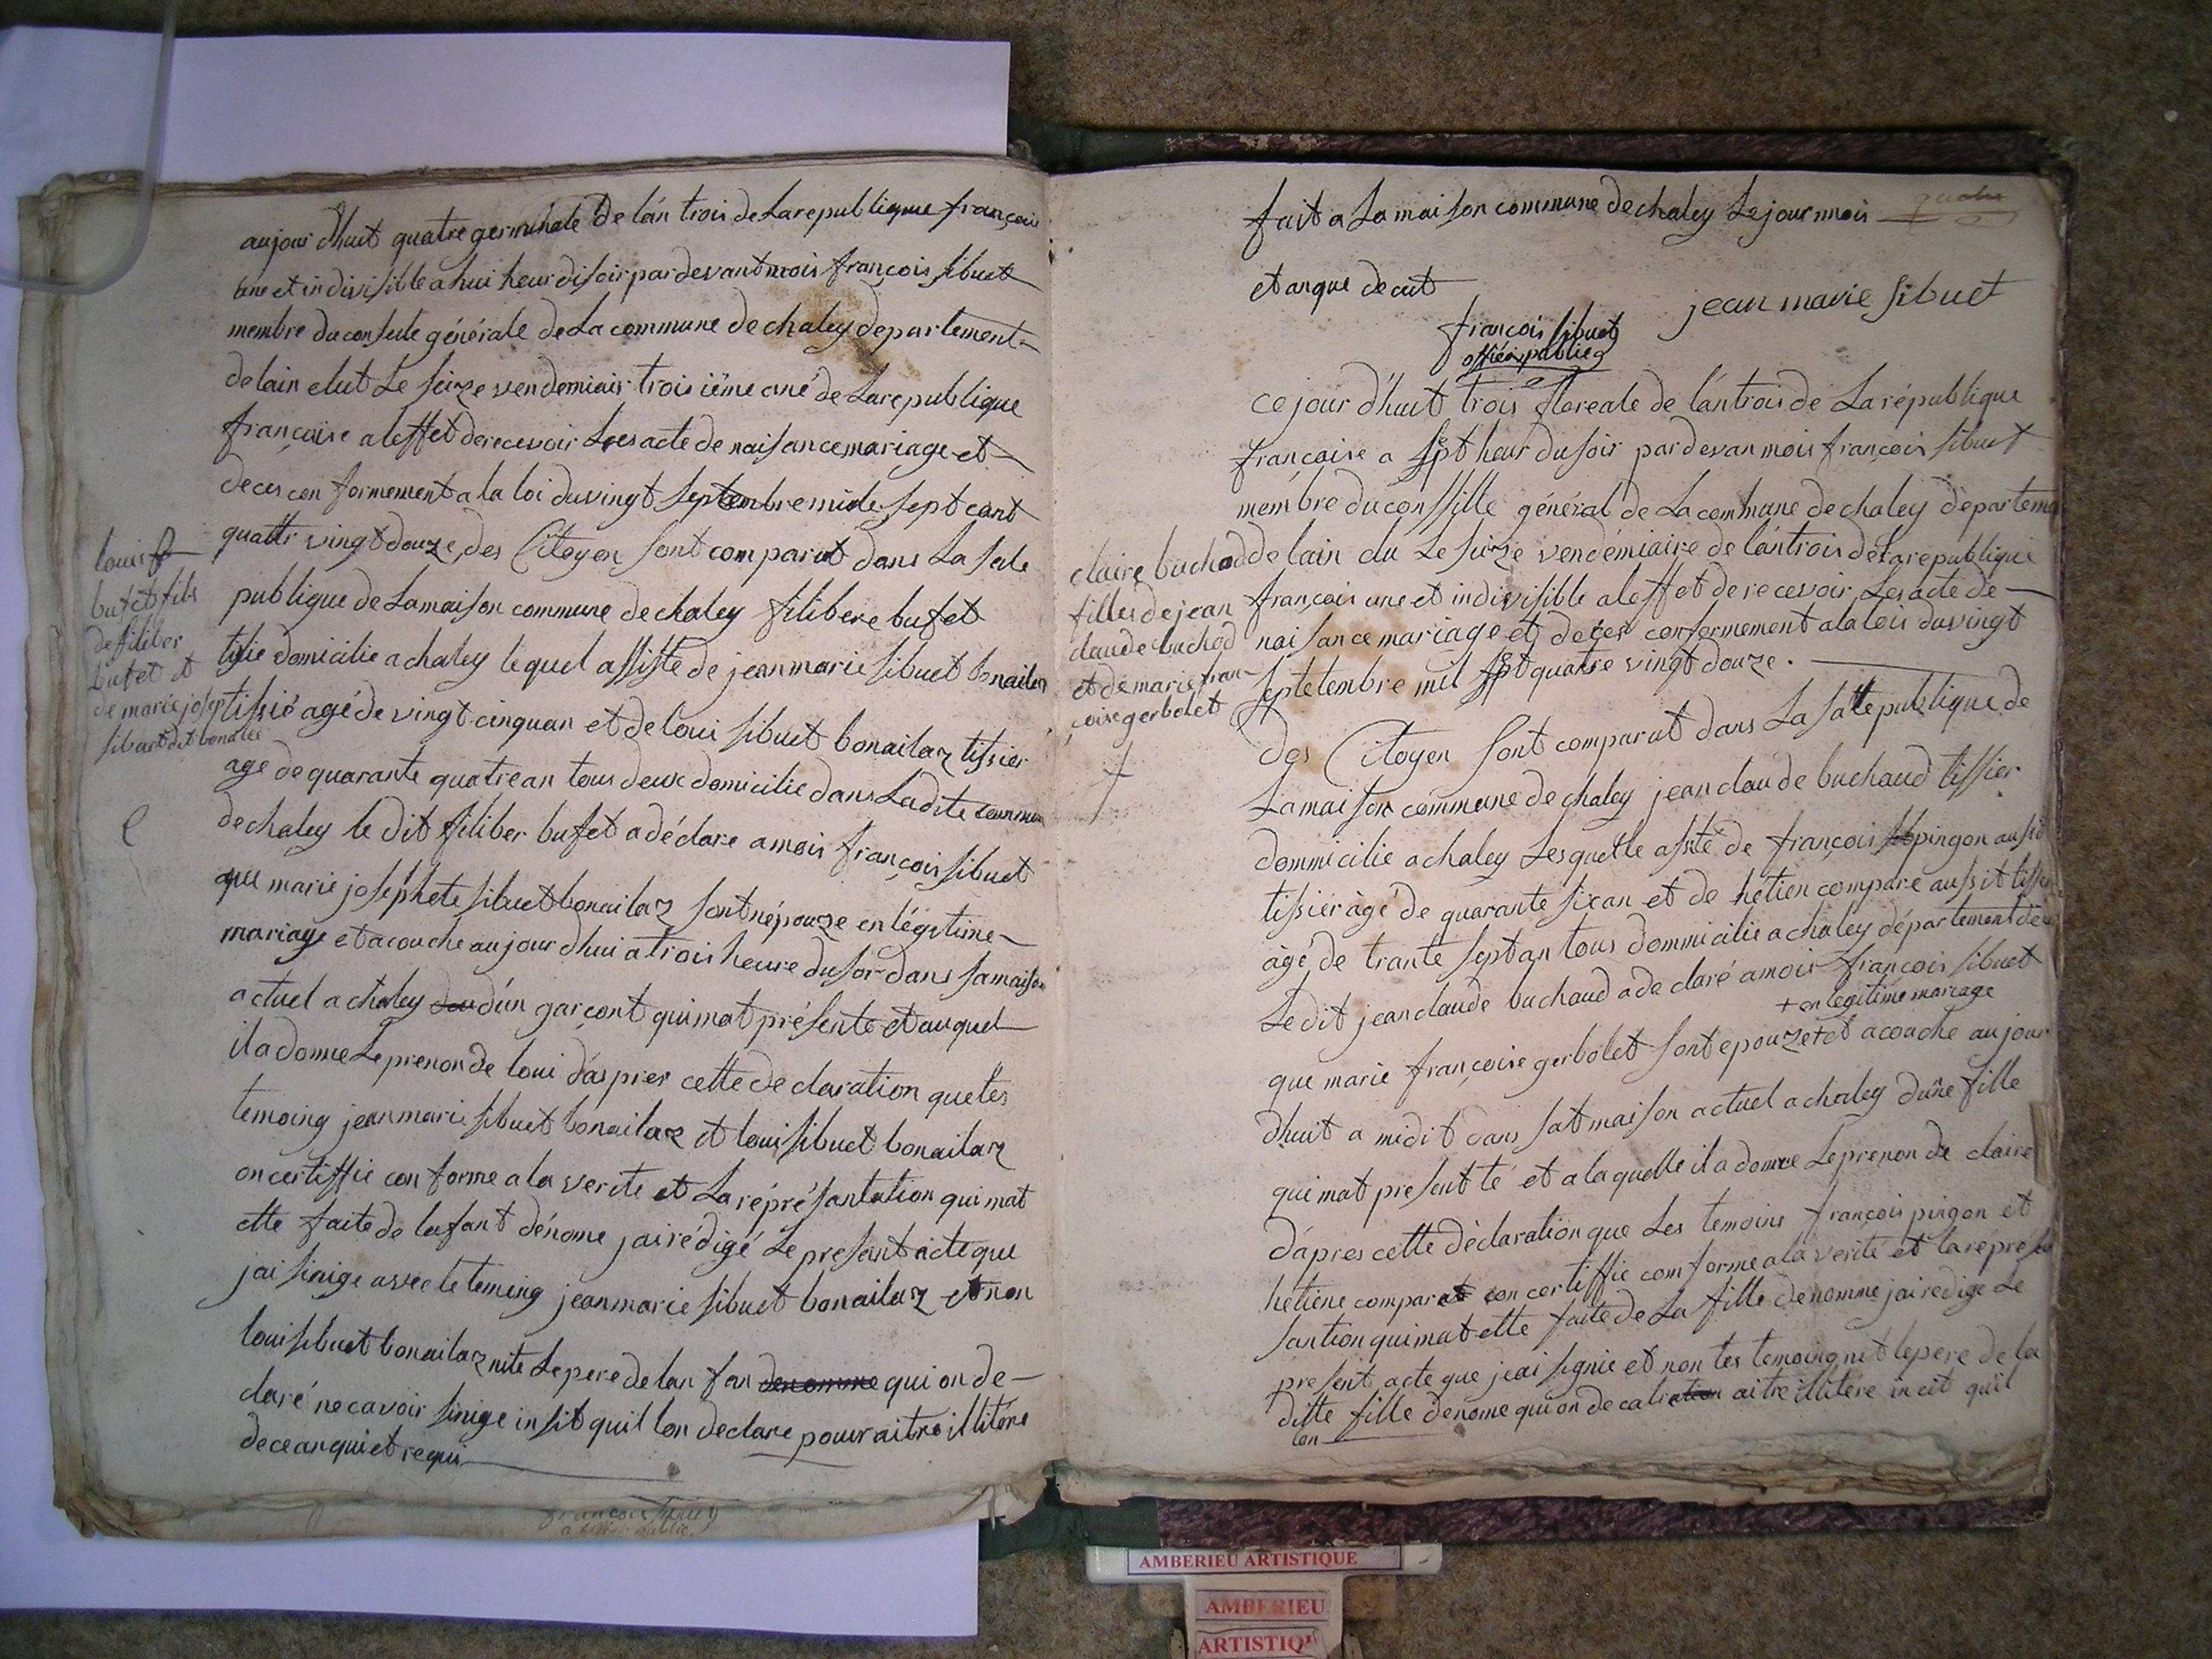 aujour dhuit quatre germinale de lán trois de Larepublique françoise
une et indivisible a hui heur disoir pardevant mois françois sibuet
membre du conseile générale de La commune de chaley departement
delain elut Le seize vendemiair troisiême ané de Larépublique
françoise a leffet derecevoir Les acte de naisance mariage et
deces con formement a la loi du vingt septembre mile sept cant
quattr vingt douze des Citoyen sont comparut dans La sale
publique de Lamaison commune de chaley filibere bufet
tisie domicilie a chaley le quel assiste de jeanmarie sibuet bonailaz
tissié agé de vingt cinquan et de loui sibuet bonailaz tissier
age de quarante quatre an tous deux domicilie dans Ladite commun
de chaley le dit filiber bufet a déclare a mois françois sibuet
que marie josephete sibuet bonailaz sont népouze en légitime
mariage et acouche aujourdhui a trois heure dusoir dans samaison
actuel a chaley dún garçont qui mat présente et auquel
il a donne Le prenon de loui dáspres cette declaration que les
temoing jeanmarie sibuet bonailaz et loui sibuet bonailaz
on certiffie con forme a la verite et La réprésantation qui mat
ette faite de lafant dénome jai rédigé Le present acte que
jai sinige avec le teming jeanmarie sibuet bonailaz et non
loui sibuet bonailaz nite Le pere de lan fan denomme qui on de-
claré ne cavoir sinige insit quil lon declare pour aitre illitére
dece anquiet requi
louis
bufet fils
de filiber
bufet et
de marie josep
sibuet dit bonailé
fait a La maison commune de chaley Le jour mois
et anque decut
jean marie sibuet
françois sibuet
officier publicq
ce jour d'huit trois floreale de lántrois de La république
françoise a sept heur dusoir pardevan mois françois sibuet
membre du conssille général de La commune de chaley departema
delain elu Le seize vendémiaire de lántrois de Larepublique
françois une et indivisible a leffet de recevoir Les acte de
naisance mariage et deces confermement a la lois du vingt
septetembre mil sept quatre vingt douze.
des Citoyen sont comparut dans La salle publique de
Lamaison commune de chaley jean claude buchaud tissier
dommicilie a chaley Lesquelle assité de françois pingon aussit
tissiér àgé de quarante six an et de hétien compare aussit tissier
àgé de trante sept an tous dommicilie a chaley département de
Le dit jean claude buchaud a declaré a mois françois sibuet
+ en legitime mariage
que marie françoise gerbolet sont epouze + et acouche aujour
dhuit a midit dans sat maison actuel a chaley dune fille
qui mat presentté et a laquelle il a donnee Leprenon de claire
dápres cette déclaration que Les temoins françois pingon et
hetiene comparet on certiffie comforme a la verite et la répresen
santion qui mat ette faite de La fille denomme jai redige Le
present acte que jeai signie et non les temoing nit le pere de la
ditte fille denome qui on decalration aitre illitére incit quil
lon
claire buchod
filles de jean
claude buchod
et de marie fran-
coise gerbolet
AMBERIEU ARTISTIQUE
AMBERIEU
ARTISTIQU